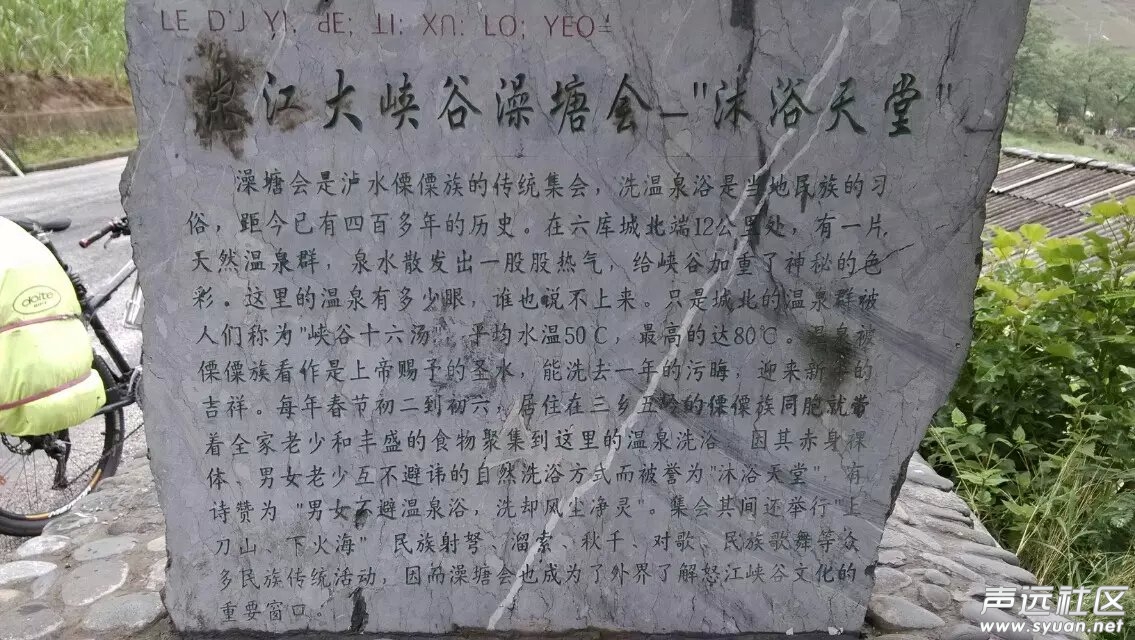 LE D'J YI; dE; ꓕI: XՈ: LO; YEO
江大峡谷澡塘会—"沐浴天堂"
澡塘会是泸水傈僳族的传统集会，洗温泉浴是当地民族的习
俗，距今已有四百多年的历史。在六库城北端12公里处，有一片
天然温泉群，泉水散发出一股股热气，给峡谷加重了神秘的色
彩。这里的温泉有多少眼，谁也说不上来。只是城北的温泉群被
人们称为"峡谷十六汤" 平均水温50℃，最高的达80℃。温泉被
傈僳族看作是上帝赐予的圣水，能洗去一年的污晦，迎来新年的
吉祥。每年春节初二到初六，居住在三乡五岭的傈僳族同胞就带
着全家老少和丰盛的食物聚集到这里的温泉洗浴 因其赤身裸
体、男女老少互不避讳的自然洗浴方式而被誉为"沐浴天堂" 有
诗赞为 "男女不避温泉浴，洗却风尘净灵"。集会其间还举行"上
刀山、下火海" 民族射弩、溜索、秋千、对歌、民族歌舞等众
多民族传统活动，因而澡塘会也成为了外界了解怒江峡谷文化的
重要窗口。
deite
声远社区
www.syuan.net